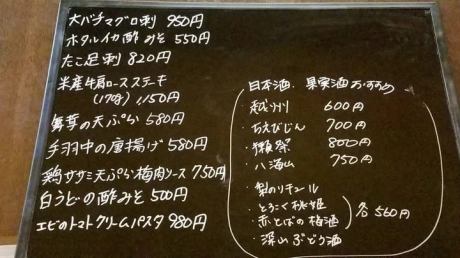 大バチマグロ刺 950円
ホタルイカ酢みそ 550円
たこ足刺 820円
米産牛肩ロースステーキ
(170g) 1,150円
舞茸の天ぷら 580円
手羽中の唐揚げ 580円
鶏ササミ天ぷら梅肉ソース 750円
白うどの酢みそ 500円
エビのトマトクリームパスタ 980円
日本酒、果実酒おすすめ
・越州 600円
・ちえびじん 700円
・獺祭 800円
・八海山 750円
・梨のリキュール
・とうぐく秘姫
・赤とばの梅酒
・深山ぶどう酒
各560円